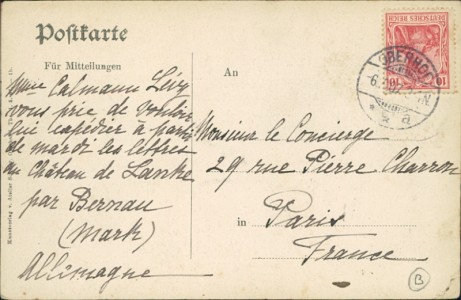 Postkarte
Für Mitteilungen
An
DEUTSCHES REICH
10 10
OBERHO
Mme Calmann Lévy
vous prie de vouloir
lui expédier à partir
de mardi les lettres
au Château de Lanke
par Bernau
(Mark)
Allemagne
Monsieur le Concierge
29 rue Pierre Charron
in Paris
France
B